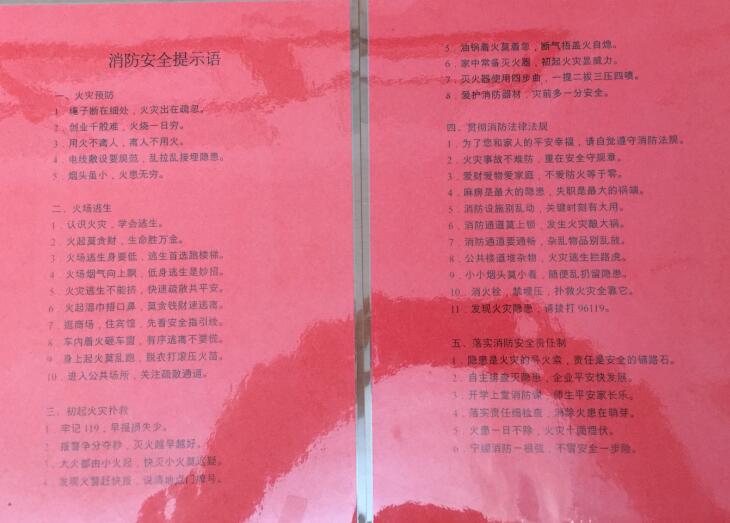 消防安全提示语
一、火灾预防
1．绳子断在细处，火灾出在疏忽。
2．创业千般难，火烧一日穷。
3．用火不离人，离人不用火。
4．电线敷设要规范，乱拉乱接埋隐患。
5．烟头虽小，火患无穷。
二、火场逃生
1．认识火灾，学会逃生。
2．火起莫贪财，生命胜万金。
3．火场逃生身要低，逃生首选跑楼梯。
4．火场烟气向上飘，低身逃生是妙招。
5．火灾逃生不能挤，快速疏散共平安。
6．火起湿巾捂口鼻，莫贪钱财速逃离。
7．逛商场，住宾馆，先看安全指引线。
8．车内着火砸车窗，有序逃离不要慌。
9．身上起火莫乱跑，脱衣打滚压火苗。
10．进入公共场所，关注疏散通道。
三、初起火灾扑救
1．牢记119，早报损失少。
2．报警争分夺秒，灭火越早越好。
3．大火都由小火起，快灭小火莫迟疑。
4．发现火警赶快报，说清地点门牌号。
5．油锅着火莫着忽，断气捂盖火自熄。
6．家中常备灭火器，初起火灾显威力。
7．灭火器使用四步曲，一提二拔三压四喷。
8．爱护消防器材，灾前多一分安全。
四、贯彻消防法律法规
1．为了您和家人的平安幸福，请自觉遵守消防法规。
2．火灾事故不难防，重在安全守规章。
3．爱财爱物爱家庭，不爱防火等于零。
4．麻痹是最大的隐患，失职是最大的祸端。
5．消防设施别乱动，关键时刻有大用。
6．消防通道莫上锁，发生火灾酿大祸。
7．消防通道要通畅，杂乱物品别乱放。
8．公共楼道堆杂物，火灾逃生拦路虎。
9．小小烟头莫小看，随便乱扔留隐患。
10．消火栓，禁埋压，扑救火灾全靠它。
11．发现火灾隐患，请拨打 96119。
五、落实消防安全责任制
1．隐患是火灾的导火索，责任是安全的铺路石。
2．自主排查灭隐患，企业平安快发展。
3．开学上堂消防课，师生平安家长乐。
4．落实责任细检查，消除火患在萌芽。
5．火患一日不除，火灾十面埋伏。
6．宁绷消防一根弦，不冒安全一步险。